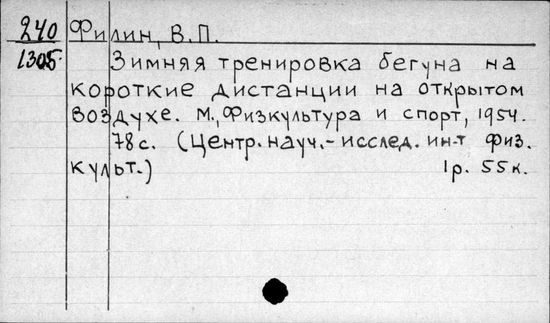 240 Филин, В.П.
1305. Зимняя тренировка бегуна на
короткие дистанции на открытом
воздухе. М., Физкультура и спорт, 1954.
78 с. (Центр. науч.-исслед. ин-т физ.
культ.) 1 р. 55 к.